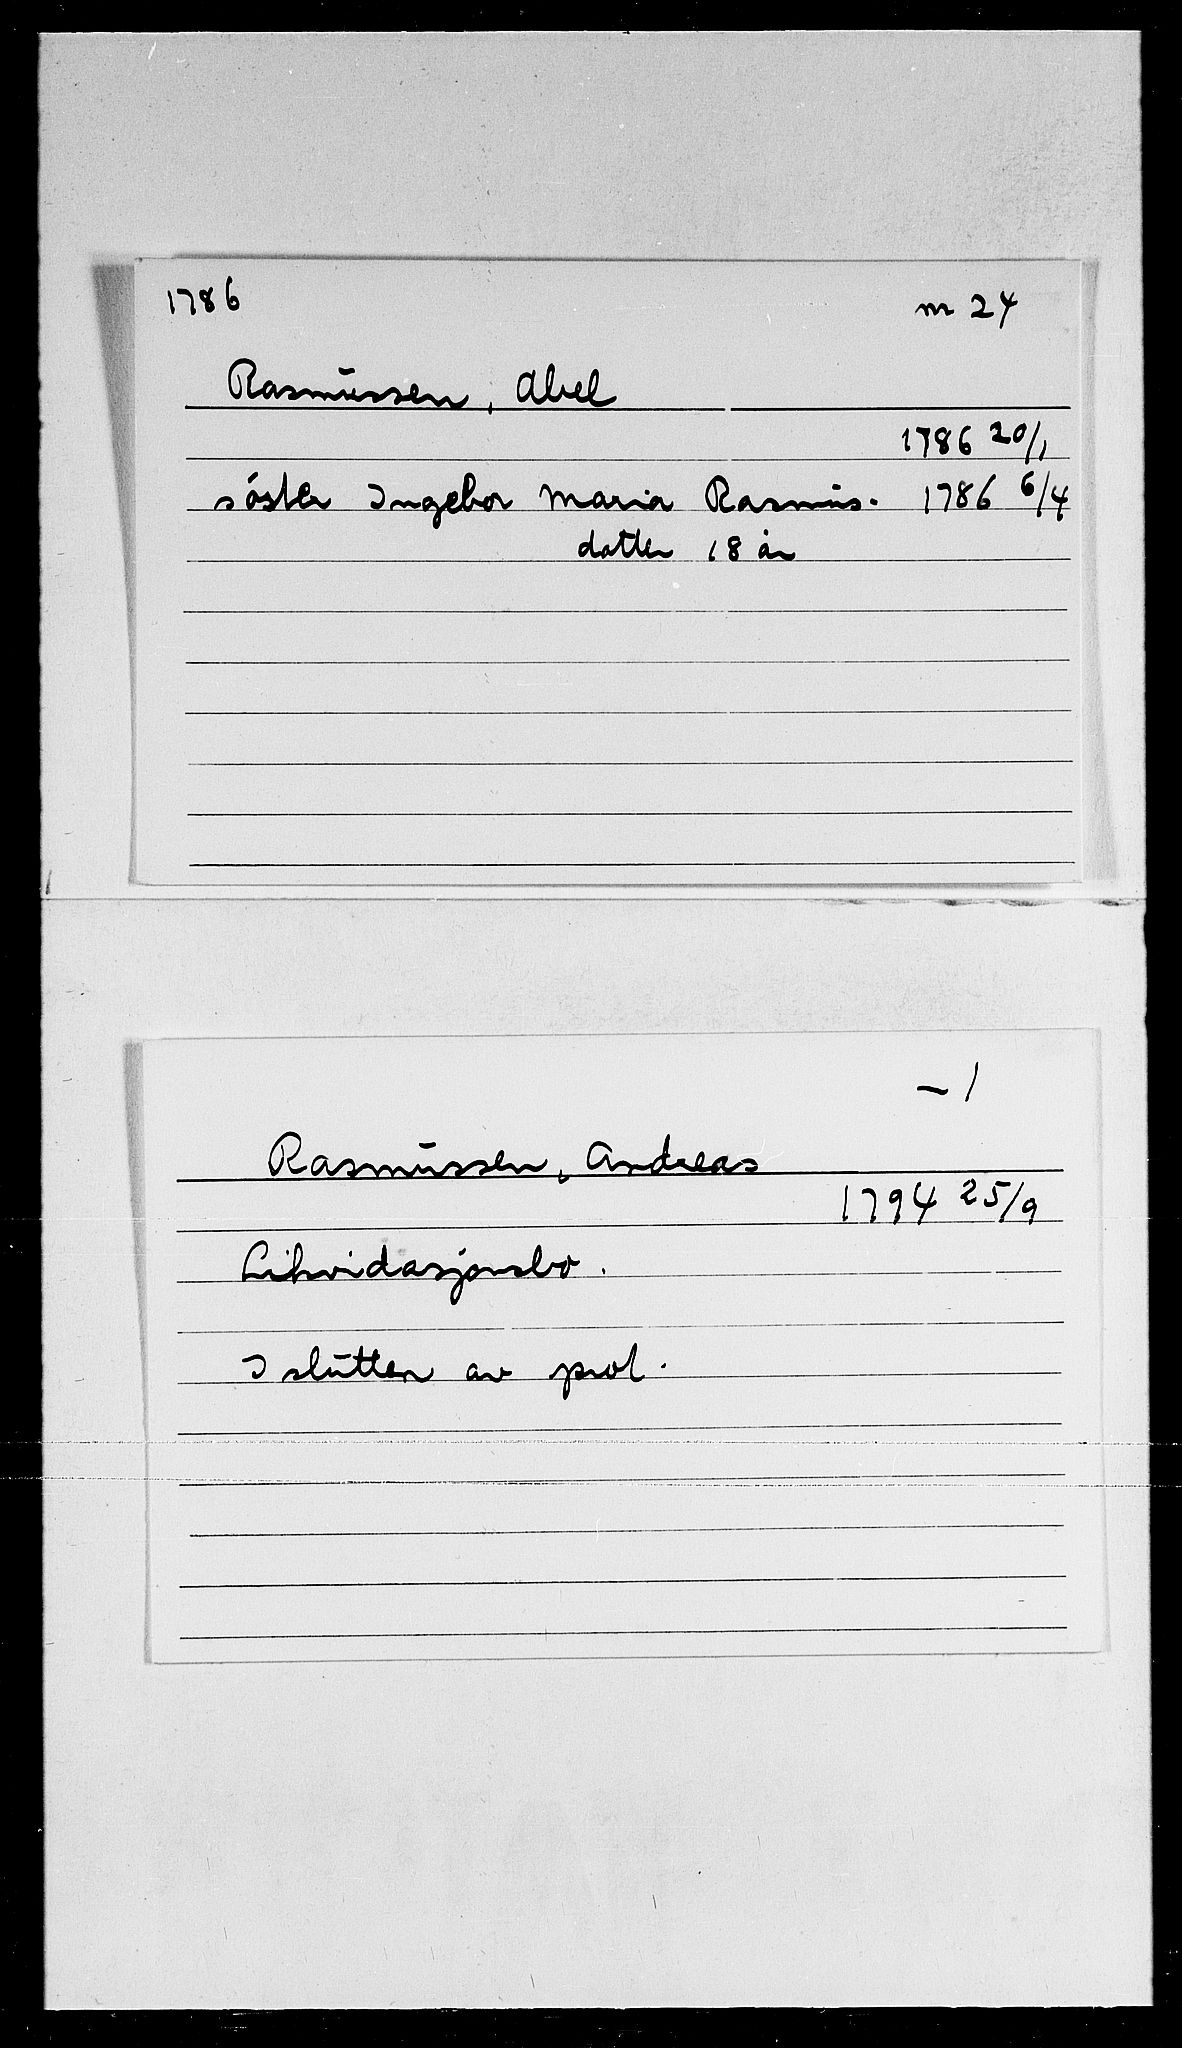 1786 m 24
Rasmussen, Abel
1786 20/1
söster Ingebor Maria Rasmus- 1786 6/4
datter 18 år
- 1
Rasmussen, Andreas
1794 25/9
Likvidasjonsbo.
I slutten av prot.